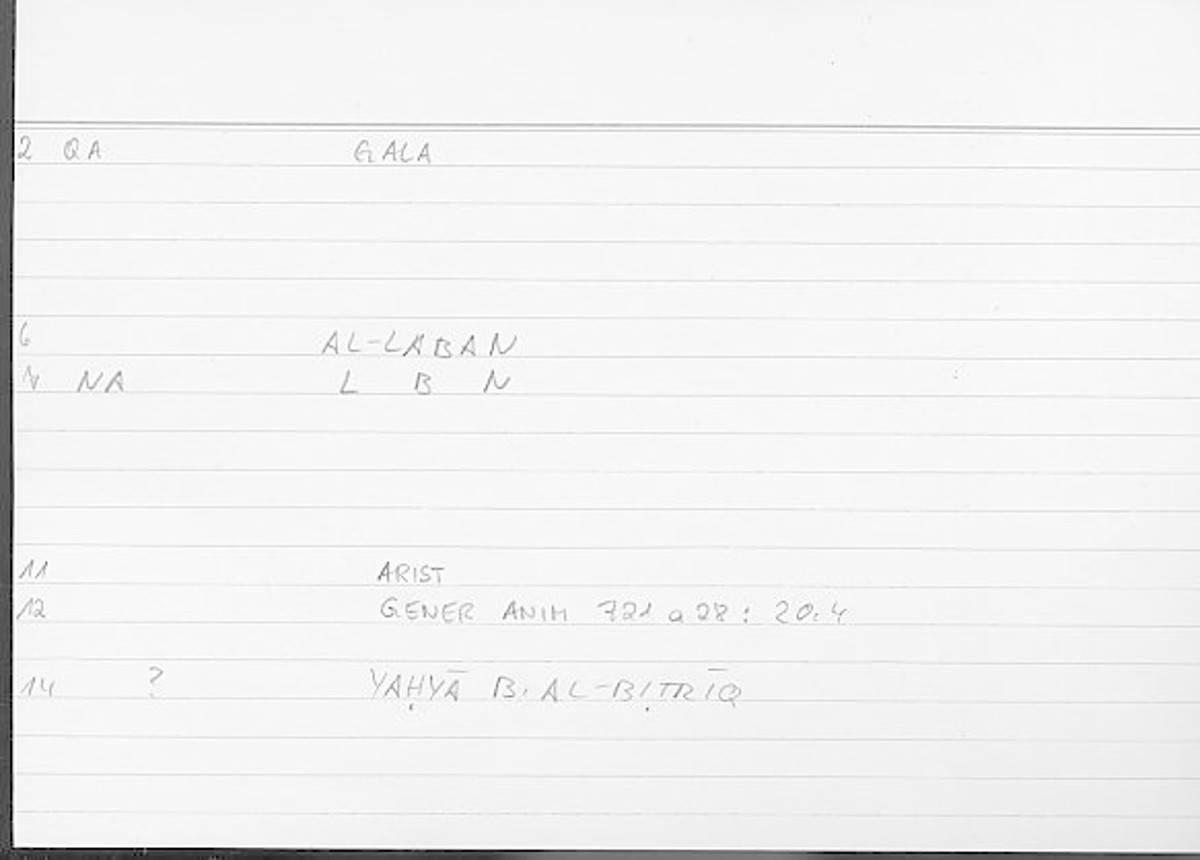 2 QA GALA
6 AL-LABAN
7 NA L B N
11 ARIST
12 GENER ANIM 721 a 28 : 20.4
14 ? YAḤYĀ B. AL-BIṬRĪQ